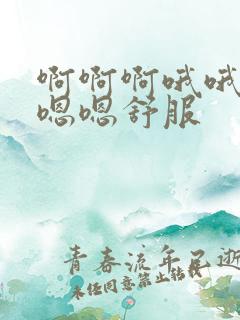 啊啊啊哦哦
嗯嗯舒服
青春流年已逝
未经同意禁止转载